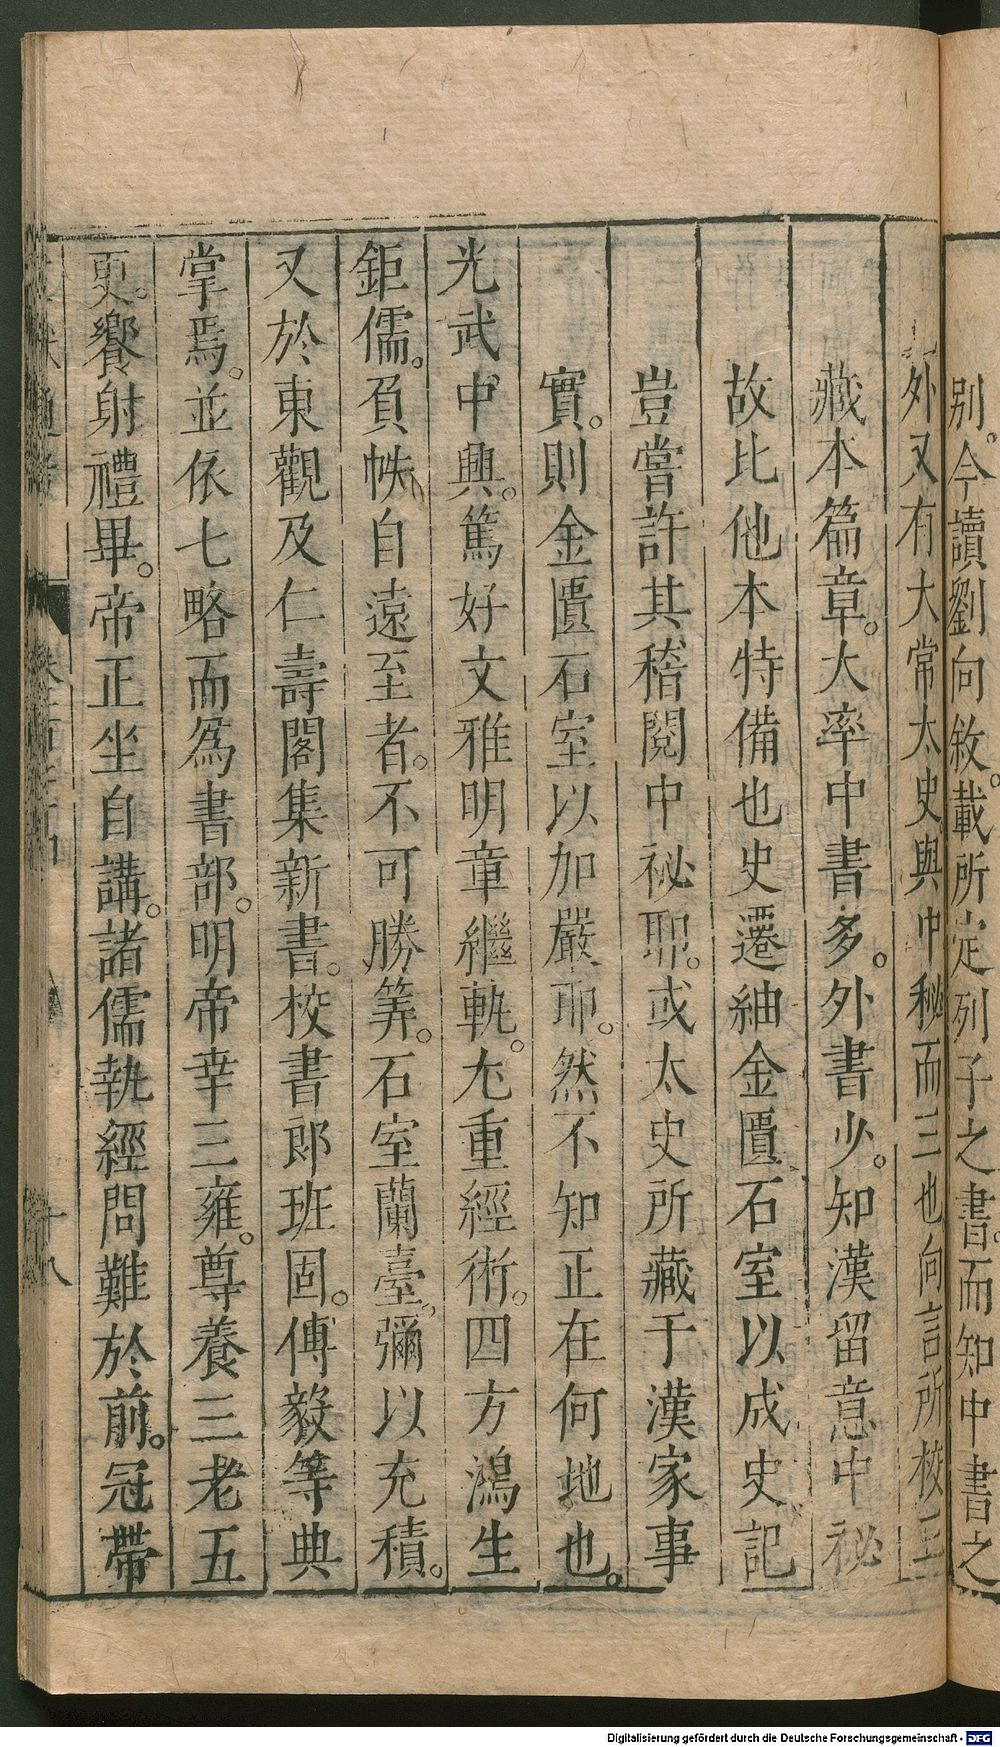 別。今讀劉向敘。載所定列子之書。而知中書之
外又有大常太史與中秘而三也向言所校
藏本篇章。大率中書多。外書少。知漢留意中祕
故比他本特備也史遷紬金匱石室以成史記
豈嘗許其稽閱中祕耶。或太史所藏于漢家事
實。則金匱石室以加嚴耶。然不知正在何地也。
光武中興。篤好文雅明章繼軌。尤重經術。四方鴻生
鉅儒。負帙自遠至者。不可勝筭。石室蘭臺。彌以充積。
又於東觀及仁壽閣集新書。校書郎班固。傅毅等典
掌焉。並依七略而爲書部。明帝幸三雍。尊養三老五
更。饗射禮畢。帝正坐自講。諸儒執經問難於前。冠帶
十八
Digitalisierung gefördert durch die Deutsche Forschungsgemeinschaft - DFG